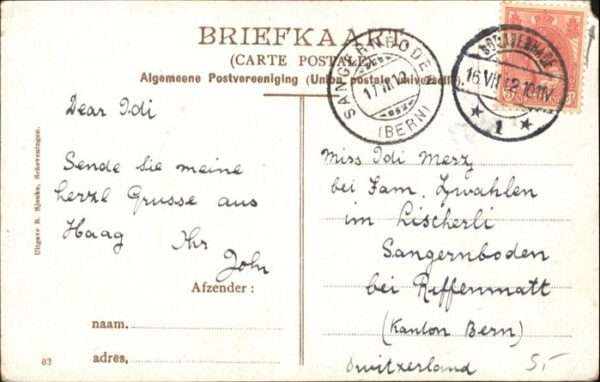 BRIEFKAART
(CARTE POSTALE)
Algemeene Postvereeniging (Union postale universelle).
SANGERNBODEN
17.VII.12
(BERN)
'SGRAVENHAGE
16.VII.12.10-11V
1
Dear Idi
Sende Sie meine
herzl Grusse aus
Haag Ihr
John
Miss Idi Merz
bei Fam. Zwahlen
im Lischerli
Sangernboden
bei Riffenmatt
(Kanton Bern)
Switzerland
5.-
Afzender:
naam.
adres,
63
Scheveningen.